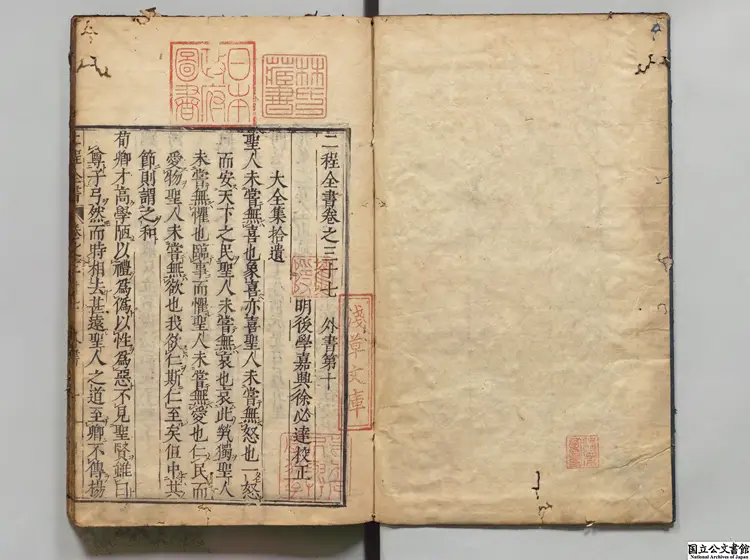 二程全書卷之三十七　外書第十
明後學嘉興徐必達校正
大全集拾遺
聖人未嘗無喜也象喜亦喜聖人未嘗無怒也一怒
而安天下之民聖人未嘗無哀也哀此煢獨聖人
未嘗無懼也臨事而懼聖人未嘗無愛也仁民而
愛物聖人未嘗無欲也我欲仁斯仁至矣但中其
節則謂之和
荀卿才高學陋以禮爲僞以性爲惡不見聖賢雖曰
尊子弓然而時相去甚遠聖人之道至卿不傳揚
二程全書
日本政府圖書
林氏藏書
淺草文庫
国立公文書館
National Archives of Japan